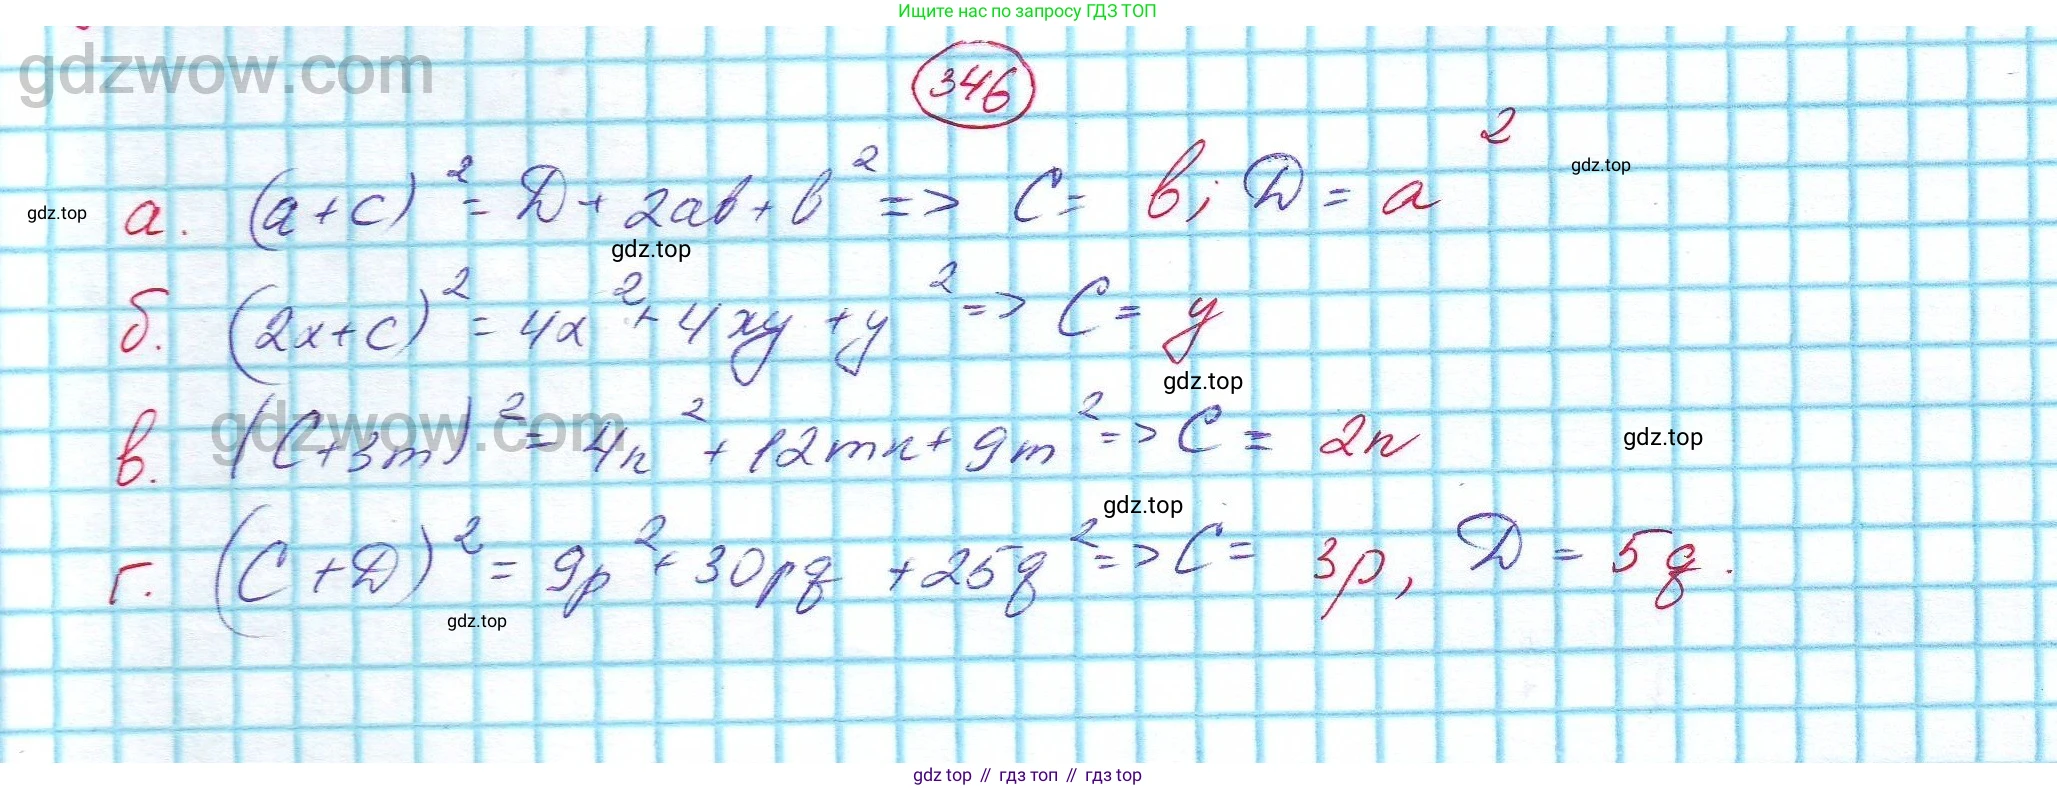 Ищите нас по запросу ГДЗ ТОП
gdzwow.com
346
gdz.top
а. (a+c)² = D + 2ab + b² => C = b; D = a²
gdz.top
gdz.top
б. (2x+c)² = 4x² + 4xy + y² => C = y
gdz.top
gdzwow.com
в. (C+3m)² = 4n² + 12mn + 9m² => C = 2n
gdz.top
gdz.top
г. (C+D)² = 9p² + 30pq + 25q² => C = 3p, D = 5q.
gdz.top
gdz top // гдз топ // гдз top